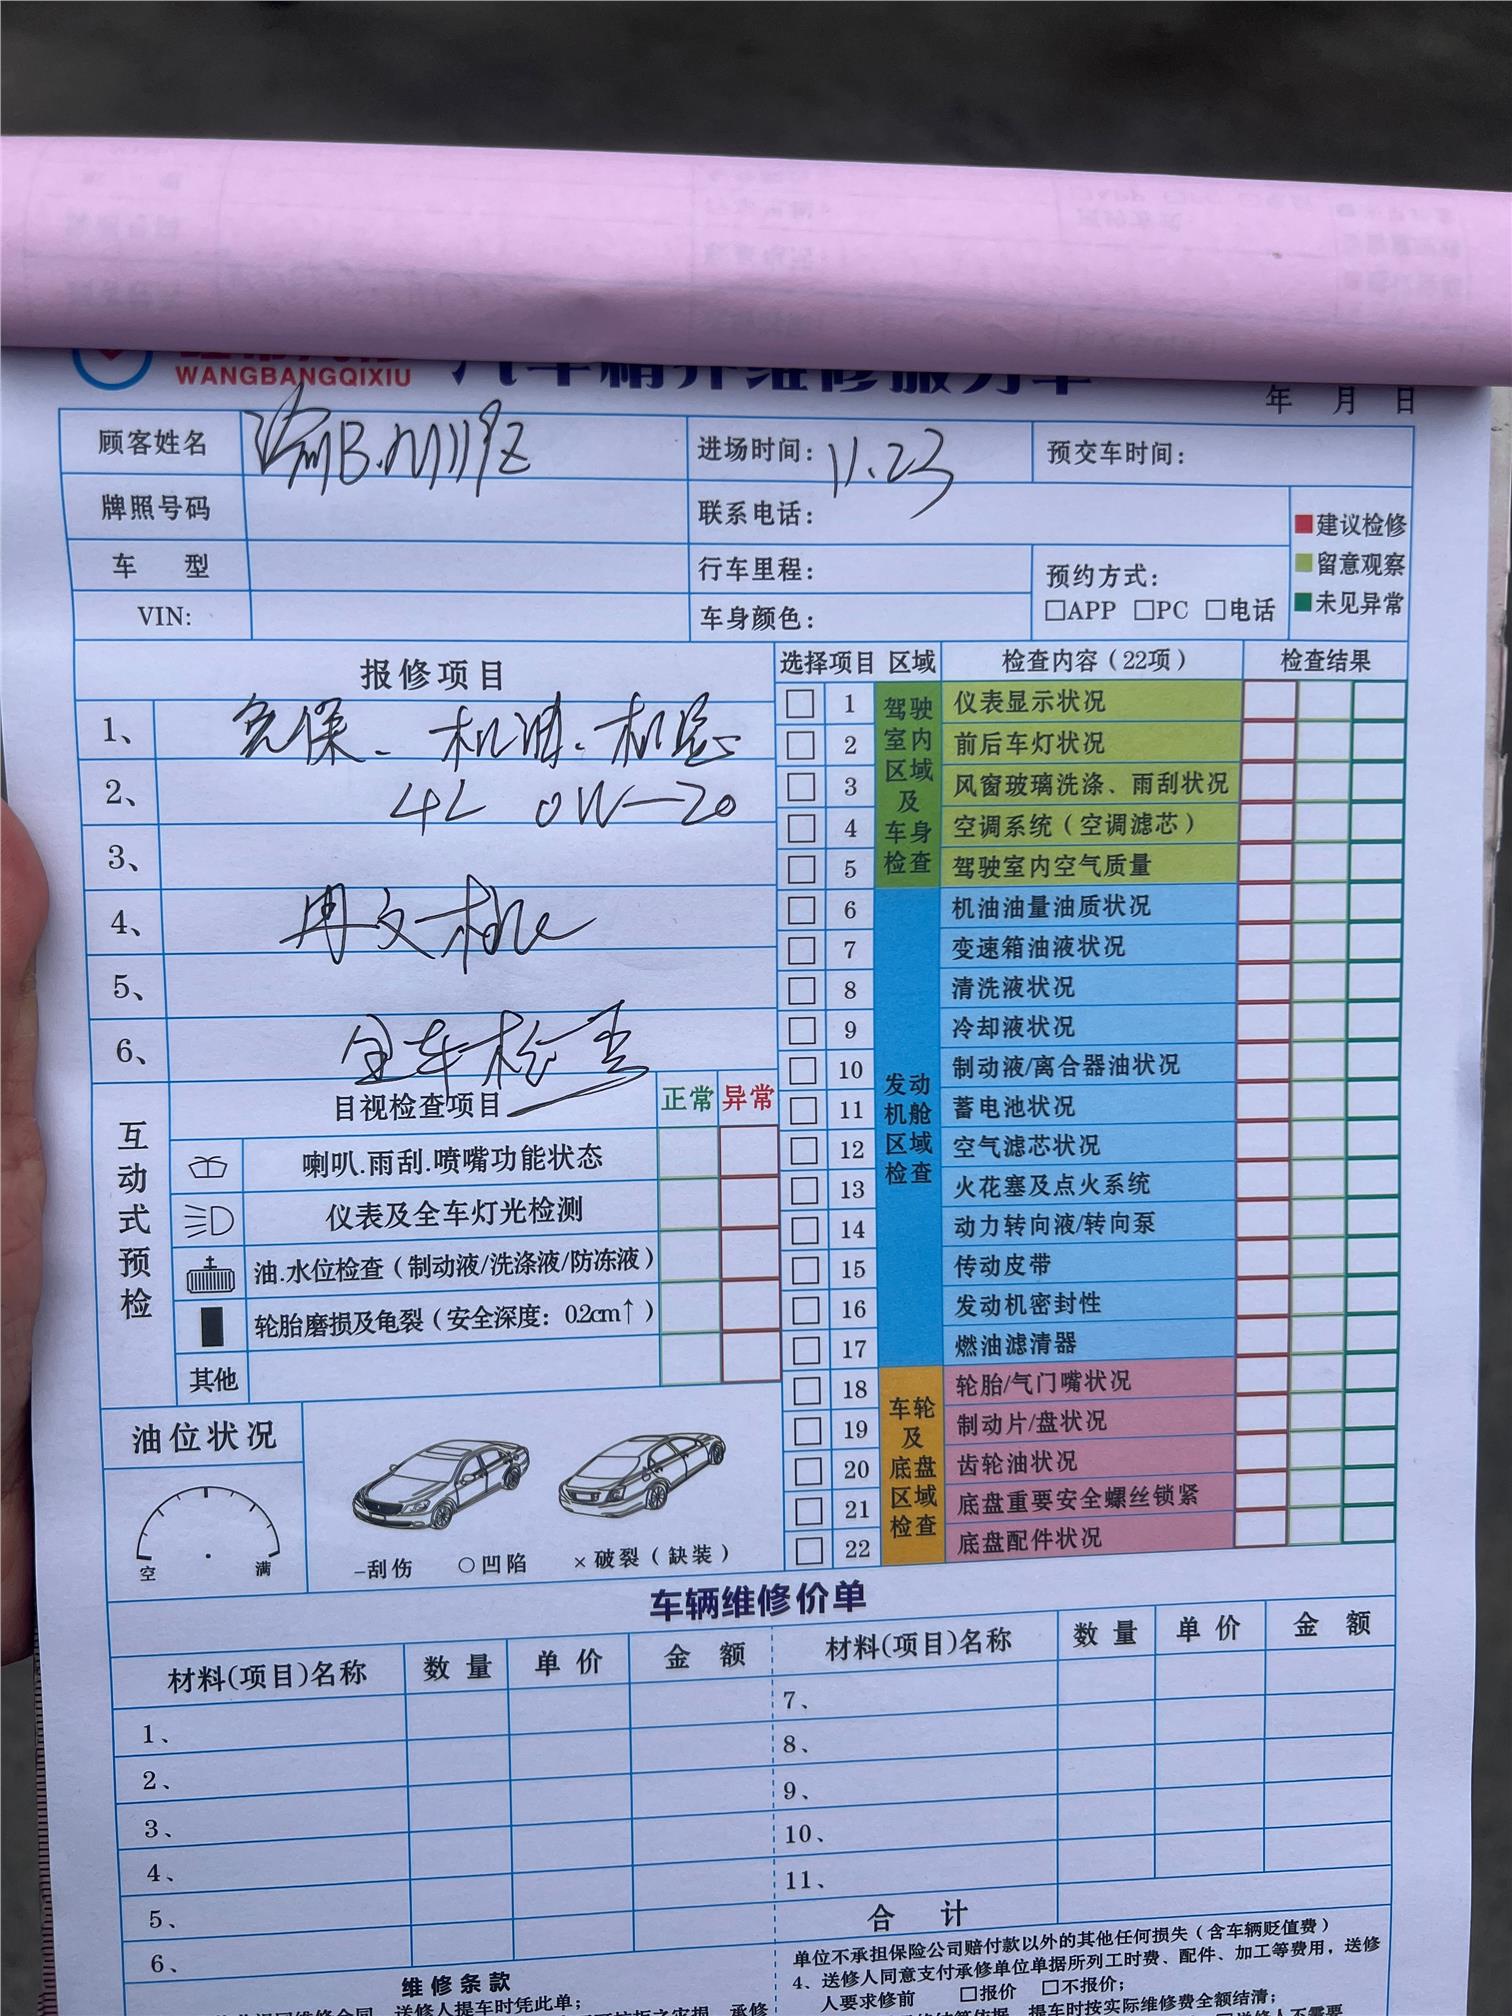 WANGBANGQIXIU
汽车精养维修服务单
年 月 日
顾客姓名 渝B. 进场时间: 11.23 预交车时间:
牌照号码 联系电话:
■建议检修
■留意观察
■未见异常
车 型 行车里程: 预约方式:
□APP □PC □电话
VIN: 车身颜色:
报修项目
1、 免保、机油、机滤
2、 4L 0W-20
3、
4、
5、
6、 全车检查
选择项目 区域 检查内容(22项) 检查结果
驾驶室内区域及车身检查
□ 1 仪表显示状况
□ 2 前后车灯状况
□ 3 风窗玻璃洗涤、雨刮状况
□ 4 空调系统(空调滤芯)
□ 5 驾驶室内空气质量
发动机舱区域检查
□ 6 机油油量油质状况
□ 7 变速箱油液状况
□ 8 清洗液状况
□ 9 冷却液状况
□ 10 制动液/离合器油状况
□ 11 蓄电池状况
□ 12 空气滤芯状况
□ 13 火花塞及点火系统
□ 14 动力转向液/转向泵
□ 15 传动皮带
□ 16 发动机密封性
□ 17 燃油滤清器
车轮及底盘区域检查
□ 18 轮胎/气门嘴状况
□ 19 制动片/盘状况
□ 20 齿轮油状况
□ 21 底盘重要安全螺丝锁紧
□ 22 底盘配件状况
互动式预检
目视检查项目 正常 异常
喇叭.雨刮.喷嘴功能状态
仪表及全车灯光检测
油.水位检查(制动液/洗涤液/防冻液)
轮胎磨损及龟裂(安全深度: 0.2cm↑)
其他
油位状况
空 满
-刮伤 ○凹陷 ×破裂(缺装)
车辆维修价单
材料(项目)名称 数量 单价 金额 材料(项目)名称 数量 单价 金额
1、 7、
2、 8、
3、 9、
4、 10、
5、 11、
6、 合计
维修条款
送修人提车时凭此单;
单位不承担保险公司赔付款以外的其他任何损失(含车辆贬值费)
4、送修人同意支付承修单位单据所列工时费、配件、加工等费用,送修
人要求修前 □报价 □不报价;
提车时按实际维修费全额结清;